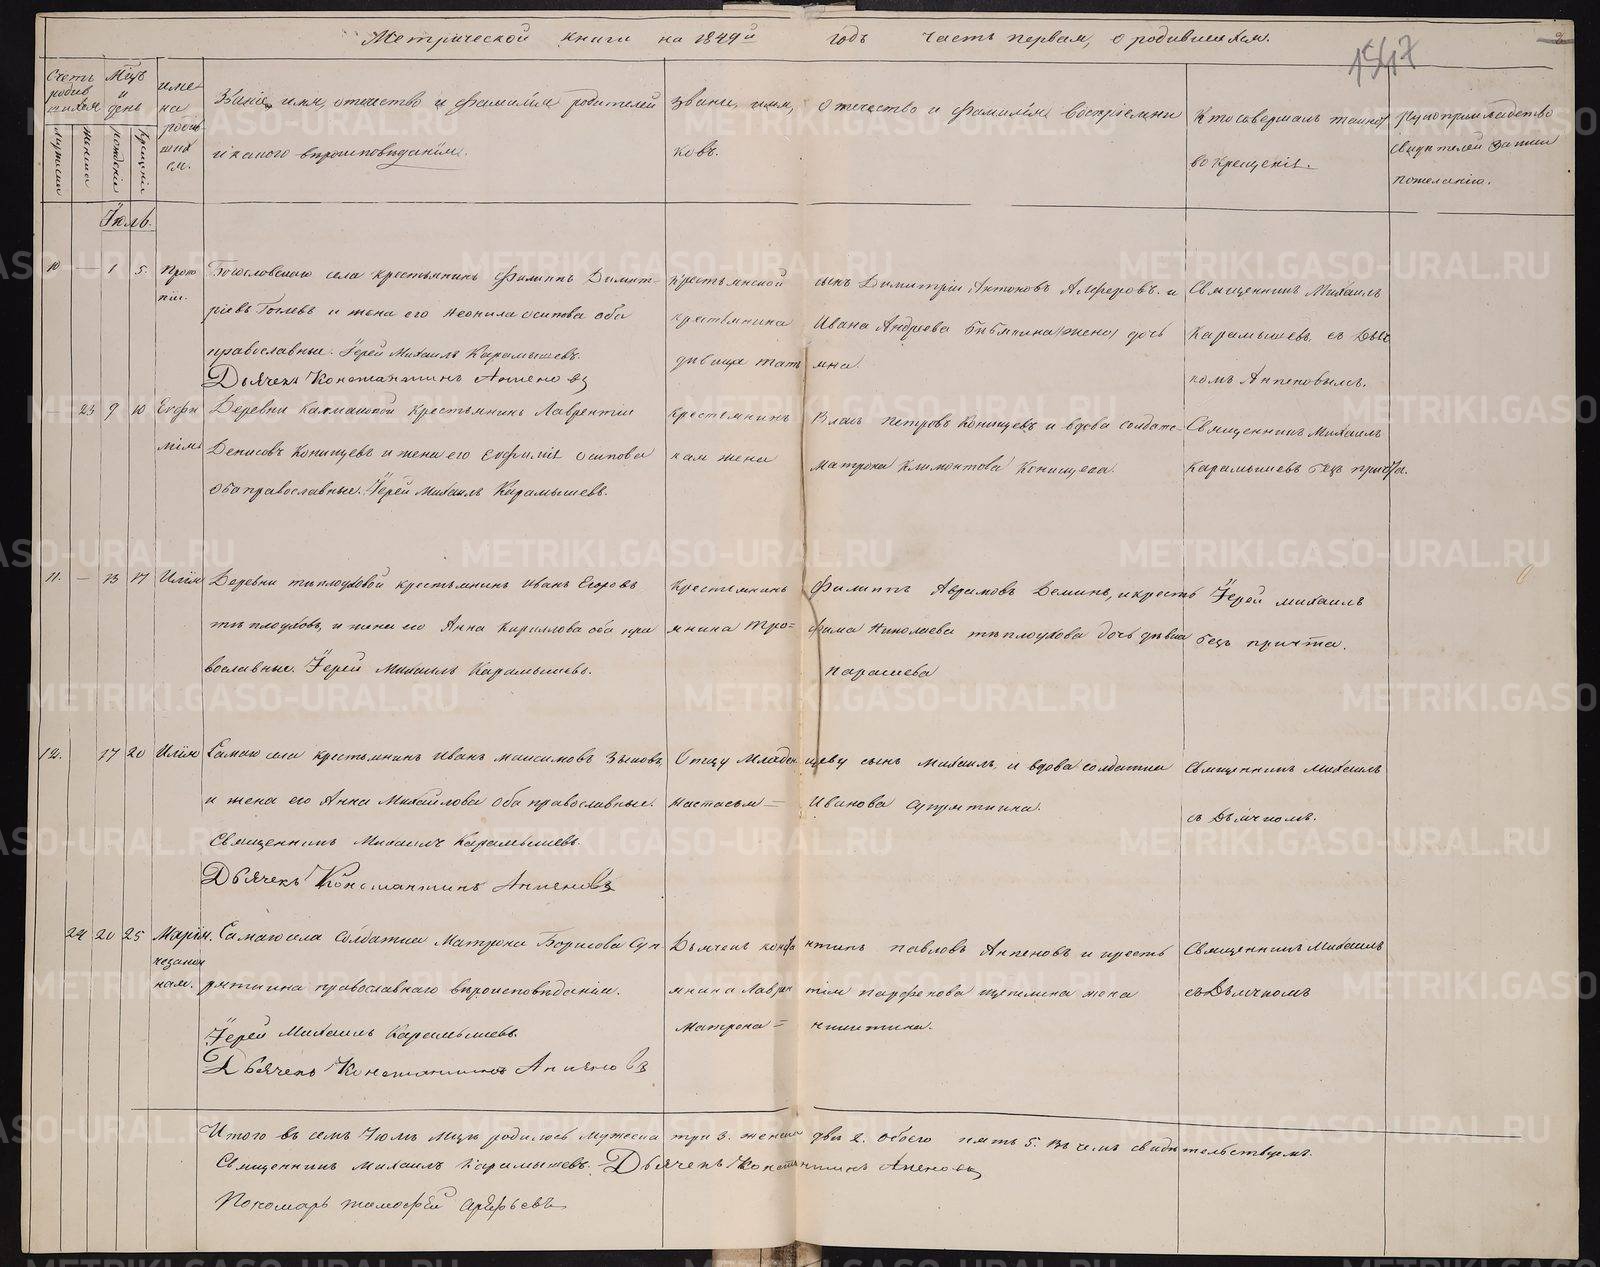 Метрической книги на 1849й годъ часть первая, о родившихся.
1547
Счетъ родившихся
Мѣцъ и день
имена родившихся.
Званіе, имя, отчество и фамилія родителей
и какого вѣроисповѣданія.
Званіе, имя, отчество и фамилія воспріемниковъ.
Кто совершалъ таинство крещенія.
Рукоприкладство свидѣтелей записи по желанію.
мужеска
женска
рожденія
крещенія
Іюль.
10 — 1 5.
Богословскаго села крестьянинъ Филиппъ Димитріевъ
и жена его Неонила Осипова оба
православные. Іерей Михаилъ Карамышевъ.
Дьячекъ Константинъ Аппеновъ
Крестьянской сынъ Димитрій Антоновъ Алферовъ и
крестьянина Ивана Андреева дочь
дѣвица Татьяна.
Священникъ Михаилъ
Карамышевъ съ Дьячкомъ Аппеновымъ.
— 23 9 10 Евфимія
Деревни крестьянинъ Лаврентій
Денисовъ Конищевъ и жена его Евфимія Осипова
оба православные. Іерей Михаилъ Карамышевъ.
Крестьянинъ Власъ Петровъ Конищевъ и вдова солдатская жена
Матрона Климонтова Конищева.
Священникъ Михаилъ
Карамышевъ безъ причта.
11. — 13 17 Илія
Деревни Тѣплоуховой крестьянинъ Иванъ Егоровъ
Тѣплоуховъ, и жена его Анна Кириллова оба православные. Іерей Михаилъ Карамышевъ.
Крестьянинъ Филиппъ Аврамовъ Деминъ, и крестьянина Трофима Николаева Тѣплоухова дочь дѣвица
Парасева
Іерей Михаилъ
безъ причта.
12. 17 20 Илія
Самаго села крестьянинъ Иванъ Максимовъ Зыковъ,
и жена его Анна Михайлова оба православные.
Священникъ Михаилъ Карамышевъ.
Дьячекъ Константинъ Аппеновъ
Отцу Младенцеву сынъ Михаилъ, и вдова солдатка
Настасья = Иванова Супряткина.
Священникъ Михаилъ
съ Дьячкомъ.
24 20 25 Марія
незаконная.
Самаго села Солдатка Матрона Борисова Супряткина православнаго вѣроисповѣданія.
Іерей Михаилъ Карамышевъ
Дьячекъ Константинъ Аппеновъ
Дьячекъ Константинъ Павловъ Аппеновъ и крестьянина Лаврентія Парфенова жена
Матрона = Никитина.
Священникъ Михаилъ
съ Дьячкомъ
Итого въ семъ Іюлѣ Мцѣ родилось мужеска три 3. женска два 2. обоего пять 5. Въ чемъ свидѣтельствуемъ.
Священникъ Михаилъ Карамышевъ. Дьячекъ Константинъ Апеновъ
Пономарь Тимофей Арефьевъ
METRIKI.GASO-URAL.RU